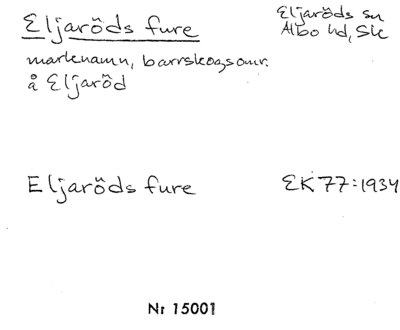 Eljaröds fure
Eljaröds sn
Albo hd, Sk
marknamn, barrskogsomr.
å Eljaröd
Eljaröds fure
EK 77:1934
Nr 15001